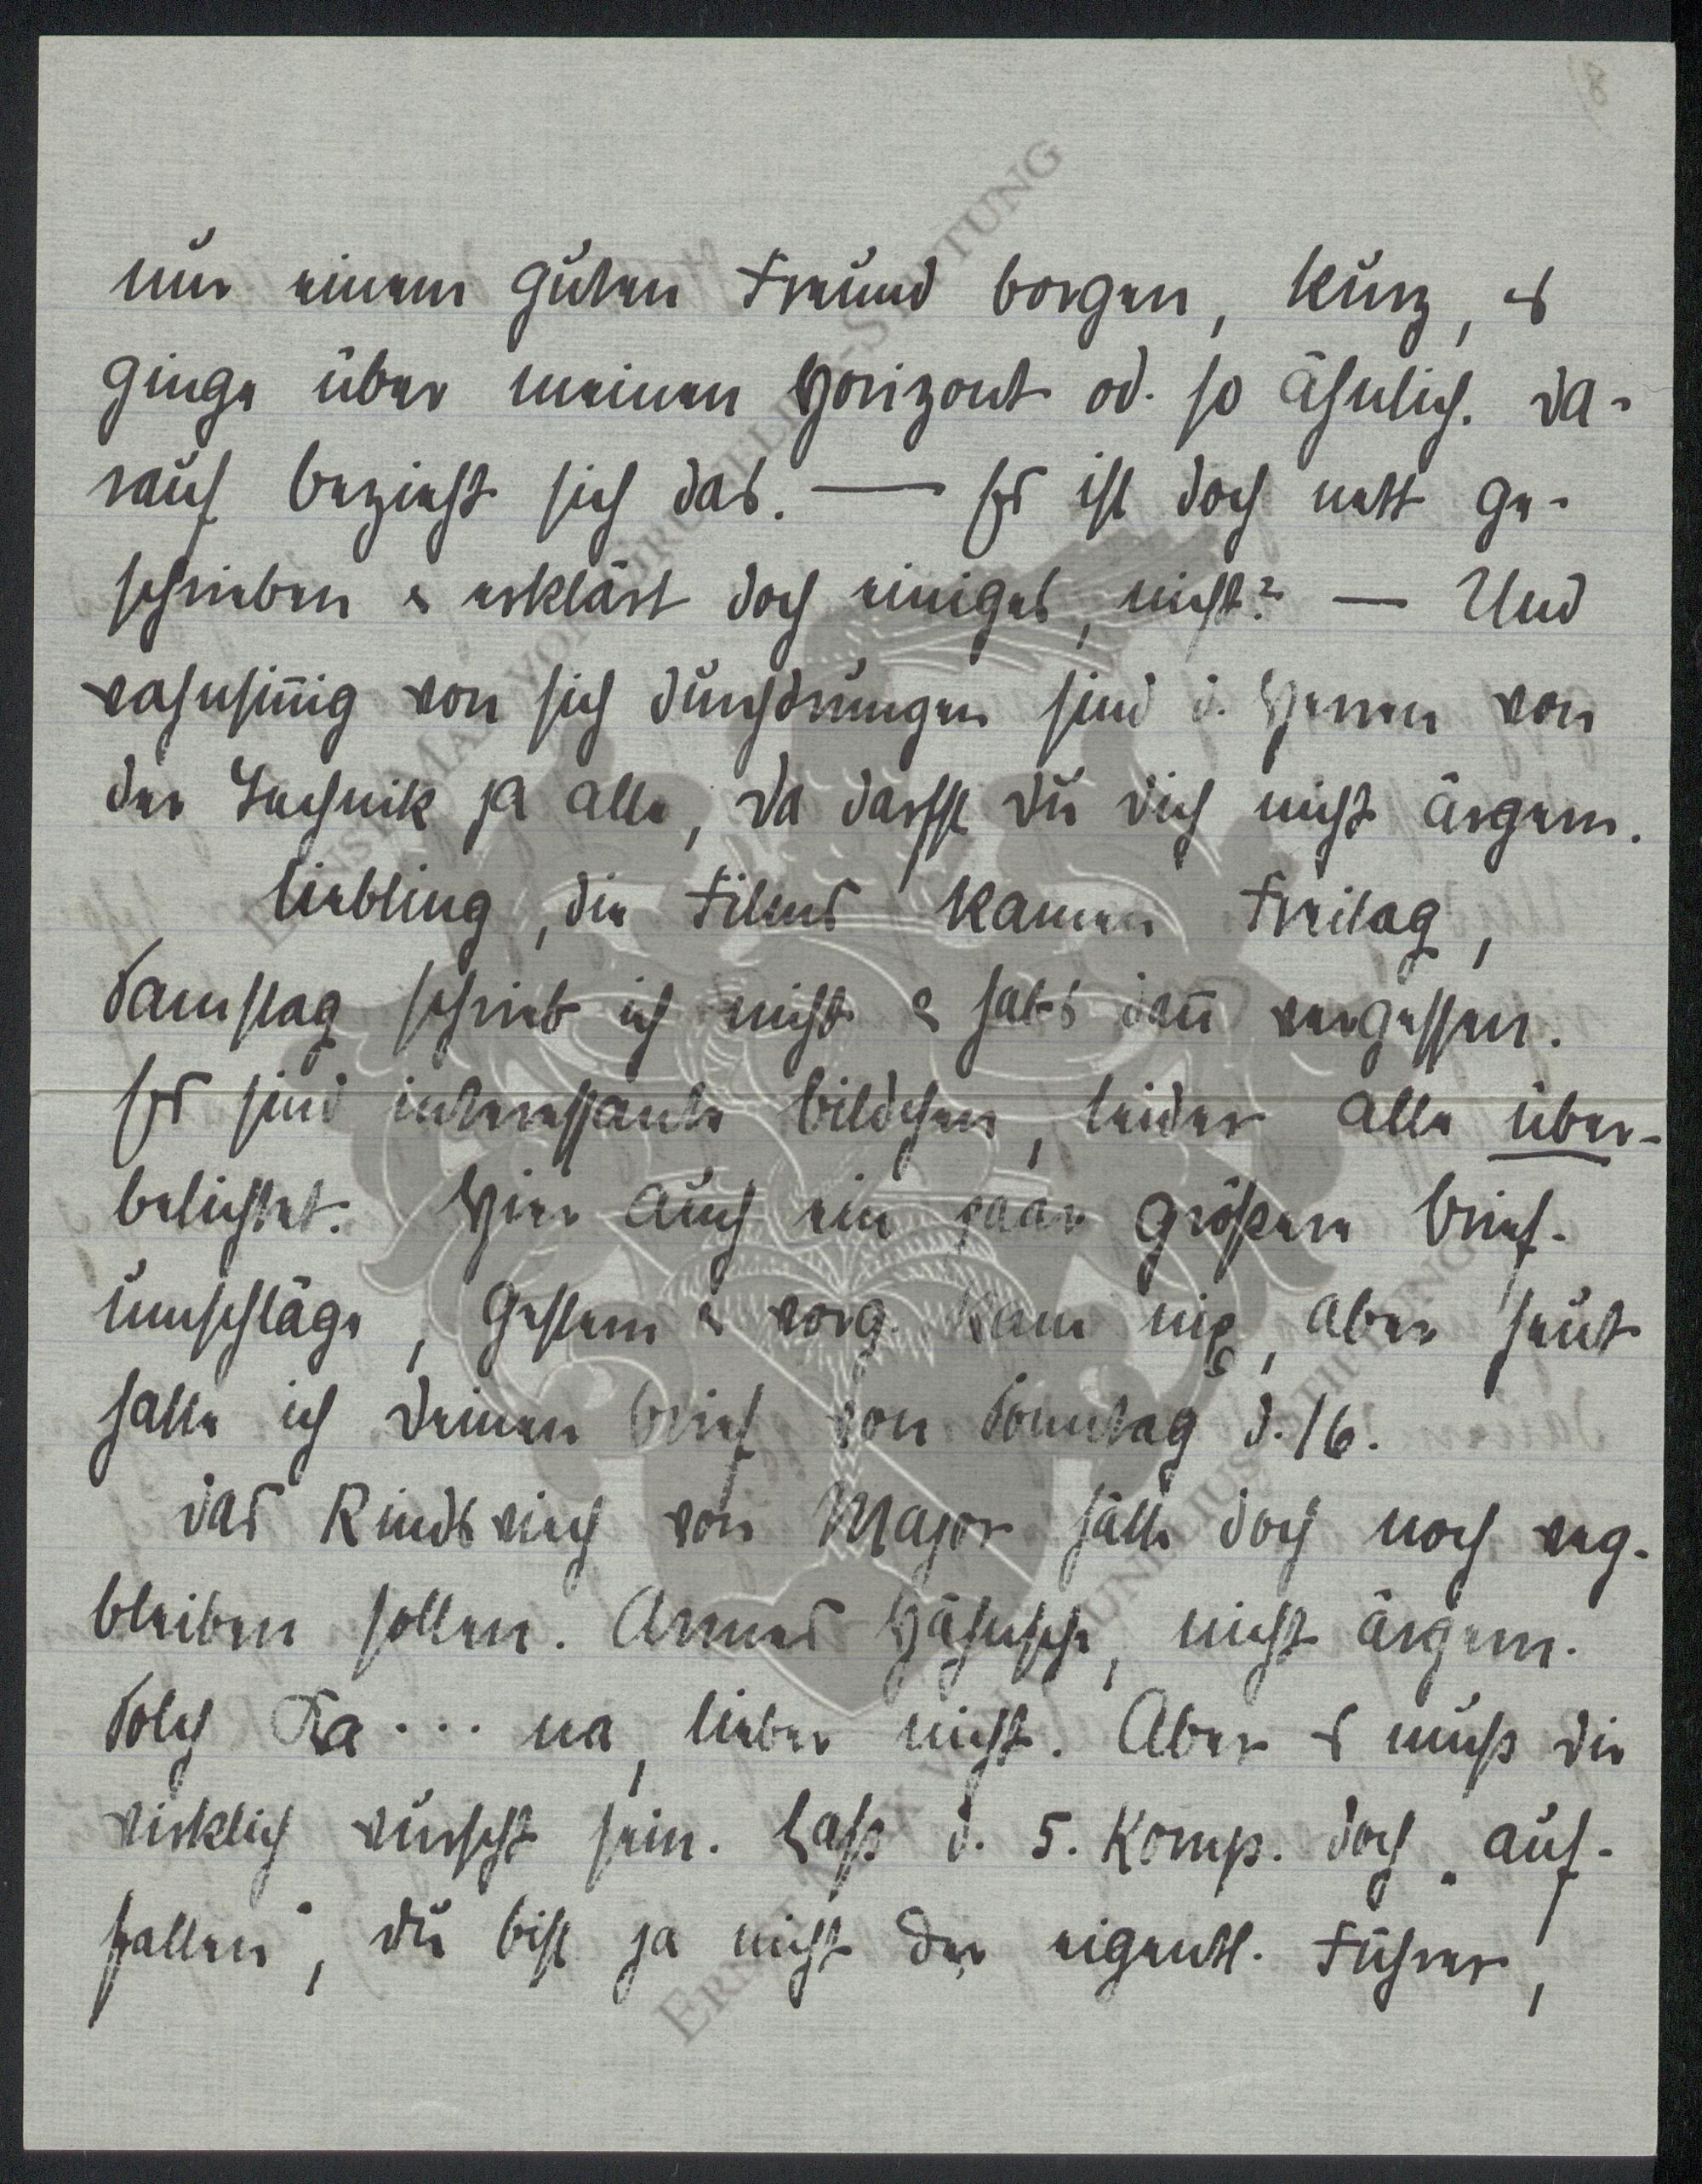 nur einem guten Freund borgen, kurz, es
ginge über meinen Horizont od. so ähnlich. Da-
rauf bezieht sich das. — Es ist doch nett ge-
schrieben & erklärt doch einiges, nicht? — Und
wahnsin̄ig von sich durchdrungen sind d. Herren von
der Technik ja alle, da darfst du dich nicht ärgern.
Liebling, die Films kamen Freitag,
Samstag schrieb ich nicht & habs dan̄ vergessen.
Es sind interessante Bildchen, leider alle über-
belichtet. Hier auch ein paar größere Brief-
umschläge, gestern & vorg. kam nix, aber heut
hatte ich deinen Brief von Sonntag d. 16.
Das Rindsvieh von Major hätte doch noch weg-
bleiben sollen. Armes Häschen, nicht ärgern.
Solch Ra... na, lieber nicht. Aber es muß dir
wirklich wurscht sein. Laß d. 5. Komp. doch „auf-
fallen“, du bist ja nicht der eigentl. Führer,
ERNST MAX VON GRUNELIUS-STIFTUNG
ERNST MAX VON GRUNELIUS-STIFTUNG